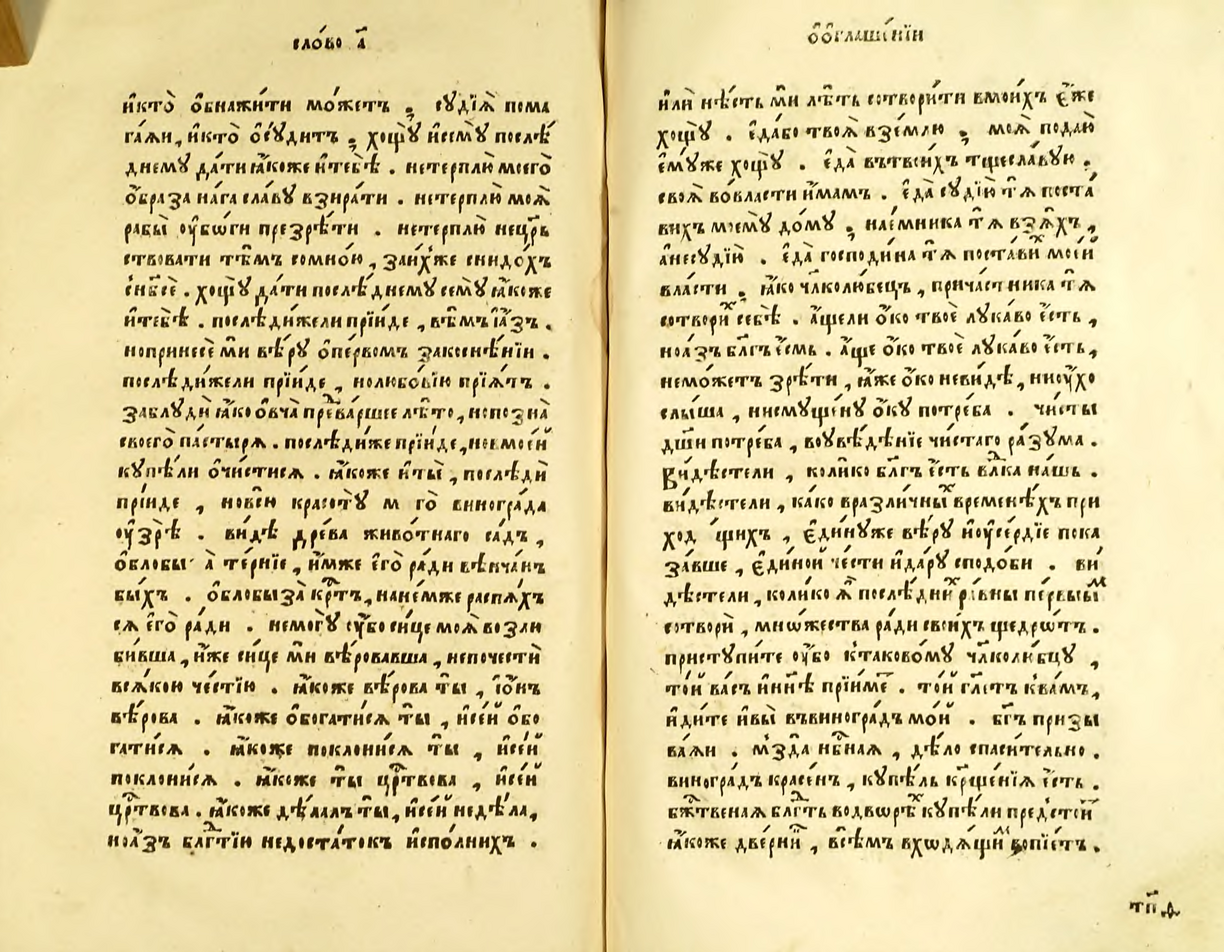 сло́во а҃
и҆кто̀ ѡ҆бнажи́ти мо́жетъ , сꙋдїѧ̀ пома
га́ѧи , и҆кто̀ ѡ҆сꙋ́дитъ , хощꙋ̀ и҆семꙋ̀ послѣ́
днемꙋ да́ти ꙗ҆́коже и҆тебѣ̀ . нетерплю̀ моего̀
ѻ҆́браза на́га сла́вꙋ взира́ти . нетерплю̀ моѧ̀
рабы̀ ᲂу҆бѡ́ги презрѣ́ти . нетерплю̀ нецр҃ь
ствовати тѣ́мъ сомно́ю , заи҆́хже снидо́хъ
снб҃сѐ . хощꙋ̀ да́ти послѣ́днемꙋ семꙋ̀ ꙗ҆́коже
и҆тебѣ̀ . послѣ́дижели прїи́де , вѣ́мъ і҆а҆́зъ .
нопринесе́ ми вѣ́рꙋ ѻ҆пе́рвомъ закоснѣ́нїи .
послѣ́дижели прїи́де , нолюбо́вїю прїѧ́тъ .
заблꙋдѝ ꙗ҆́ко ѻ҆вча̀ пре́варшее лѣ́то , испозна̀
своего̀ па́стырѧ . послѣ́диже прїи́де , новмое́й
кꙋпѣ́ли ѡ҆чи́стисѧ . ꙗ҆́коже и҆ты̀ , послѣдѝ
прїи́де , новсю̀ красотꙋ̀ м го̀ виногра́да
ᲂу҆зрѣ̀ . ви́дѣ дре́ва живо́тнаго са́дъ ,
ѡ҆блобы а̀ те́рнїе , и҆́мже є҆го̀ ра́ди вѣнча́нъ
бы́хъ . ѡ҆блобыза̀ крⷭ҇тъ , нане́мже распѧ́хъ
сѧ є҆го̀ ра́ди . немогꙋ̀ ᲂу҆̀бо си́це моѧ̀ возлю
би́вша , и҆́же си́це ми вѣ́ровавша , непоче́сти
всѧ́кою че́стїю . ꙗ҆́коже вѣ́рова ты̀ , і҆о́нъ
вѣ́рова . ꙗ҆́коже ѡ҆богати́сѧ ты̀ , и҆се́й ѡ҆бо
гати́сѧ . ꙗ҆́коже поклони́сѧ ты̀ , и҆се́й
поклони́сѧ . ꙗ҆́коже ты̀ црⷭ҇твова , и҆се́й
црⷭ҇твова . ꙗ҆́коже дѣ́лалъ ты̀ , и҆се́й недѣ́ла ,
ноа҆́зъ блгⷣтїю недоста́токъ и҆спо́лнихъ .
ѻ҆ѻ҆глаше́нїи
и҆лѝ нѣ́сть ми лѣ́ть сотвори́ти вмои́хъ є҆́же
хощꙋ̀ . є҆да́бо твоѧ̀ взе́млю , моѧ̀ подаю̀
є҆мꙋ́же хощꙋ̀ . є҆да̀ вътвои́хъ тщесла́вꙋю ,
своѧ̀ во́власти и҆́мамъ . є҆да̀ сꙋдїю̀ тѧ̀ поста́
вихъ моемꙋ̀ до́мꙋ , нае́мника тѧ̀ взѧ́хъ ,
а҆несꙋдїю̀ . є҆да̀ господи́на тѧ̀ поста́виⷯ мое́й
вла́сти . ꙗ҆́ко чл҃колю́бецъ , прича́стника тѧ̀
сотвори́ⷯ себѣ̀ . а҆́щели ѻ҆́ко твоѐ лꙋка́во є҆́сть ,
ноа҆́зъ бл҃гъ є҆́смь . а҆́ще ѻ҆́ко твоѐ лꙋка́во є҆́сть ,
немо́жетъ зрѣ́ти , ꙗ҆́же ѻ҆́ко неви́дѣ , ниᲂу҆́хо
слы́ша , нисмꙋще́нꙋ ѻ҆́кꙋ потре́ба . чи́сты
дш҃и потре́ба , воᲂу҆вѣ́дѣнїе чи́стаго ра́зꙋма .
Ви́дѣстели , коли́ко бл҃гъ є҆́сть влⷣка на́шъ .
ви́дѣстели , ка́ко вразли́чныⷯ временѣ́хъ при
ход щихъ , є҆ди́нꙋже вѣ́рꙋ и҆ᲂу҆се́рдїе пока
за́вше , є҆ди́ной че́сти и҆да́рꙋ сподо́би . ви́
дѣстели , коли́ко ꙗ҆̀ послѣ́дниⷯ ра́вны пе́рвыиⷨ
сотворѝ , мно́жества ра́ди свои́хъ щедро́тъ .
пристꙋпи́те ᲂу҆̀бо ктаково́мꙋ чл҃колю́бцꙋ ,
то́й ва́съ и҆нн҃ѣ прїи́ме . то́й гл҃етъ ква́мъ ,
и҆ди́те и҆вы̀ въвиногра́дъ мо́й . бг҃ъ призы
ва́ѧи . мзда̀ нбⷭ҇наѧ , дѣ́ло спаси́тельно .
виногра́дъ красе́нъ , кꙋпѣ́ль крⷭ҇ще́нїѧ є҆́сть .
бжⷭ҇твенаѧ блгⷣть водво́рѣⷯ кꙋпѣ́ли предстои́т
ꙗ҆́коже две́рниⷦ , всѣ́мъ вхѡдѧ́щиⷨ вопїе́тъ .